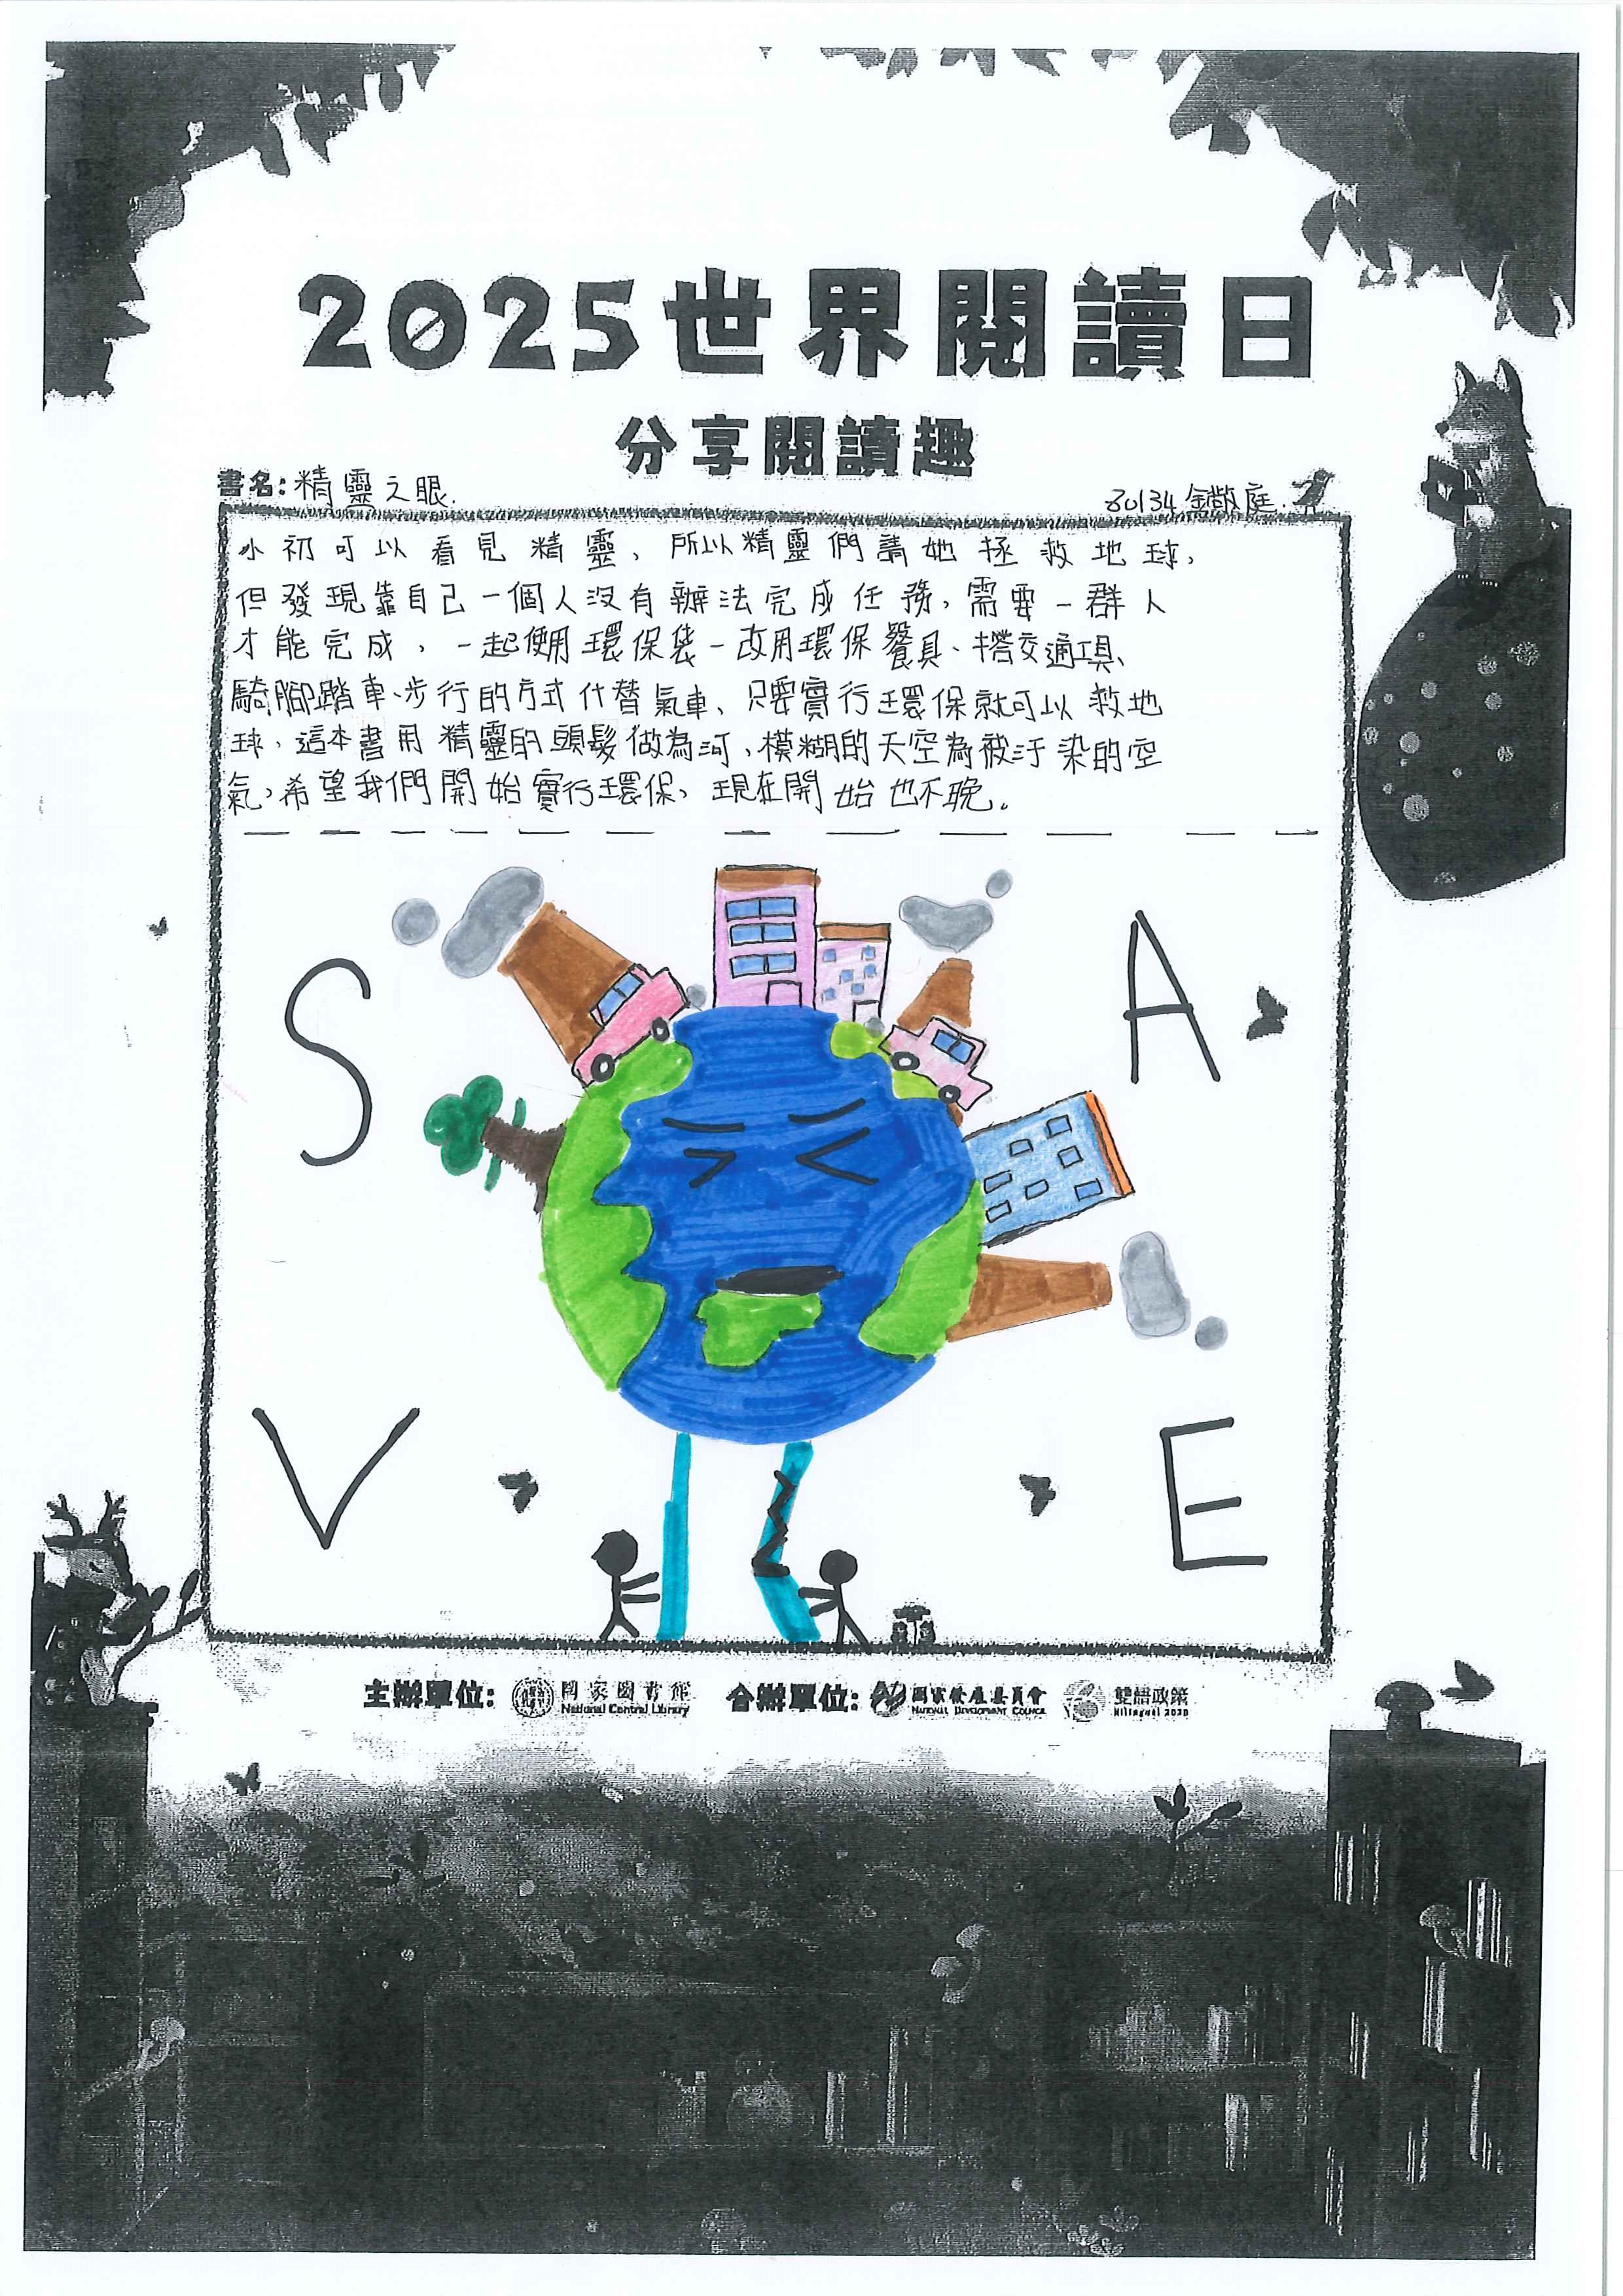 2025世界閱讀日
分享閱讀趣
書名：精靈之眼.
80134 庭.
小初可以看見精靈，所以精靈們請她拯救地球，
但發現靠自己一個人沒有辦法完成任務，需要一群人
才能完成，一起使用環保袋、改用環保餐具、搭交通工具、
騎腳踏車、步行的方式代替氣車、只要實行環保就可以救地
球，這本書用精靈的頭髮做為河，模糊的天空為被汙染的空
氣，希望我們開始實行環保，現在開始也不晚。
S A
V E
主辦單位： 國家圖書館 National Central Library 合辦單位： 國家發展委員會 NATIONAL DEVELOPMENT COUNCIL 雙語政策 Bilingual 2030